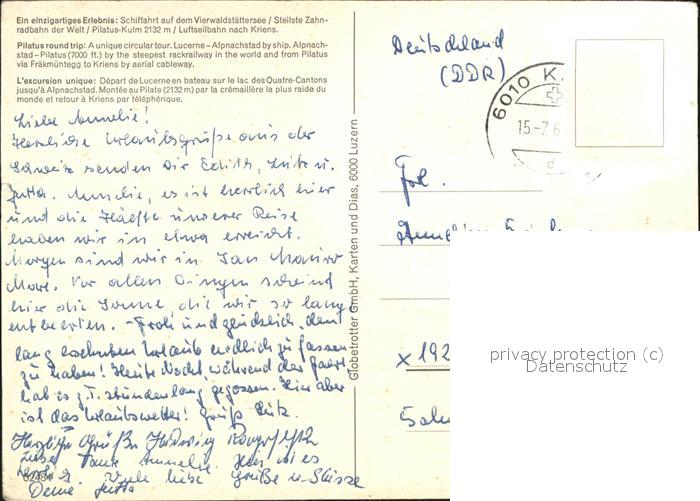 Ein einzigartiges Erlebnis: Schiffahrt auf dem Vierwaldstättersee / Steilste Zahn-
radbahn der Welt / Pilatus-Kulm 2132 m / Luftseilbahn nach Kriens.
Pilatus round trip: A unique circular tour. Lucerne – Alpnachstad by ship. Alpnach-
stad – Pilatus (7000 ft.) by the steepest rackrailway in the world and from Pilatus
via Fräkmüntegg to Kriens by aerial cableway.
L'excursion unique: Départ de Lucerne en bateau sur le lac des Quatre-Cantons
jusqu'à Alpnachstad. Montée au Pilate (2132 m) par la crémaillère la plus raide du
monde et retour à Kriens par téléphérique.
Liebe Annelie!
Herzliche Urlaubsgrüße aus der
Schweiz senden Dir Edith, Lutz u.
Jutta. Annelie, es ist herrlich hier
und die Hälfte unserer Reise
haben wir in etwa erreicht.
Morgen sind wir in San
Vor allen Dingen scheint
hier die Sonne, die wir so lange
entbehrten. - Froh und glücklich, den
lang Urlaub endlich zu fassen
zu haben! Heute Nacht, während der Fahrt
hat es z.T. stundenlang gegossen. Hier aber
ist das Urlaubswetter! Gruß Lutz.
Herzliche Grüße
Liebe Tante Annelie. Hier ist es
Viele liebe Grüße u.
Deine Jutta
Globetrotter GmbH, Karten und Dias, 6000 Luzern
Deutschland
(DDR)
6010 K
15.-7.6
d
Frl.
x 192
privacy protection (c)
Datenschutz